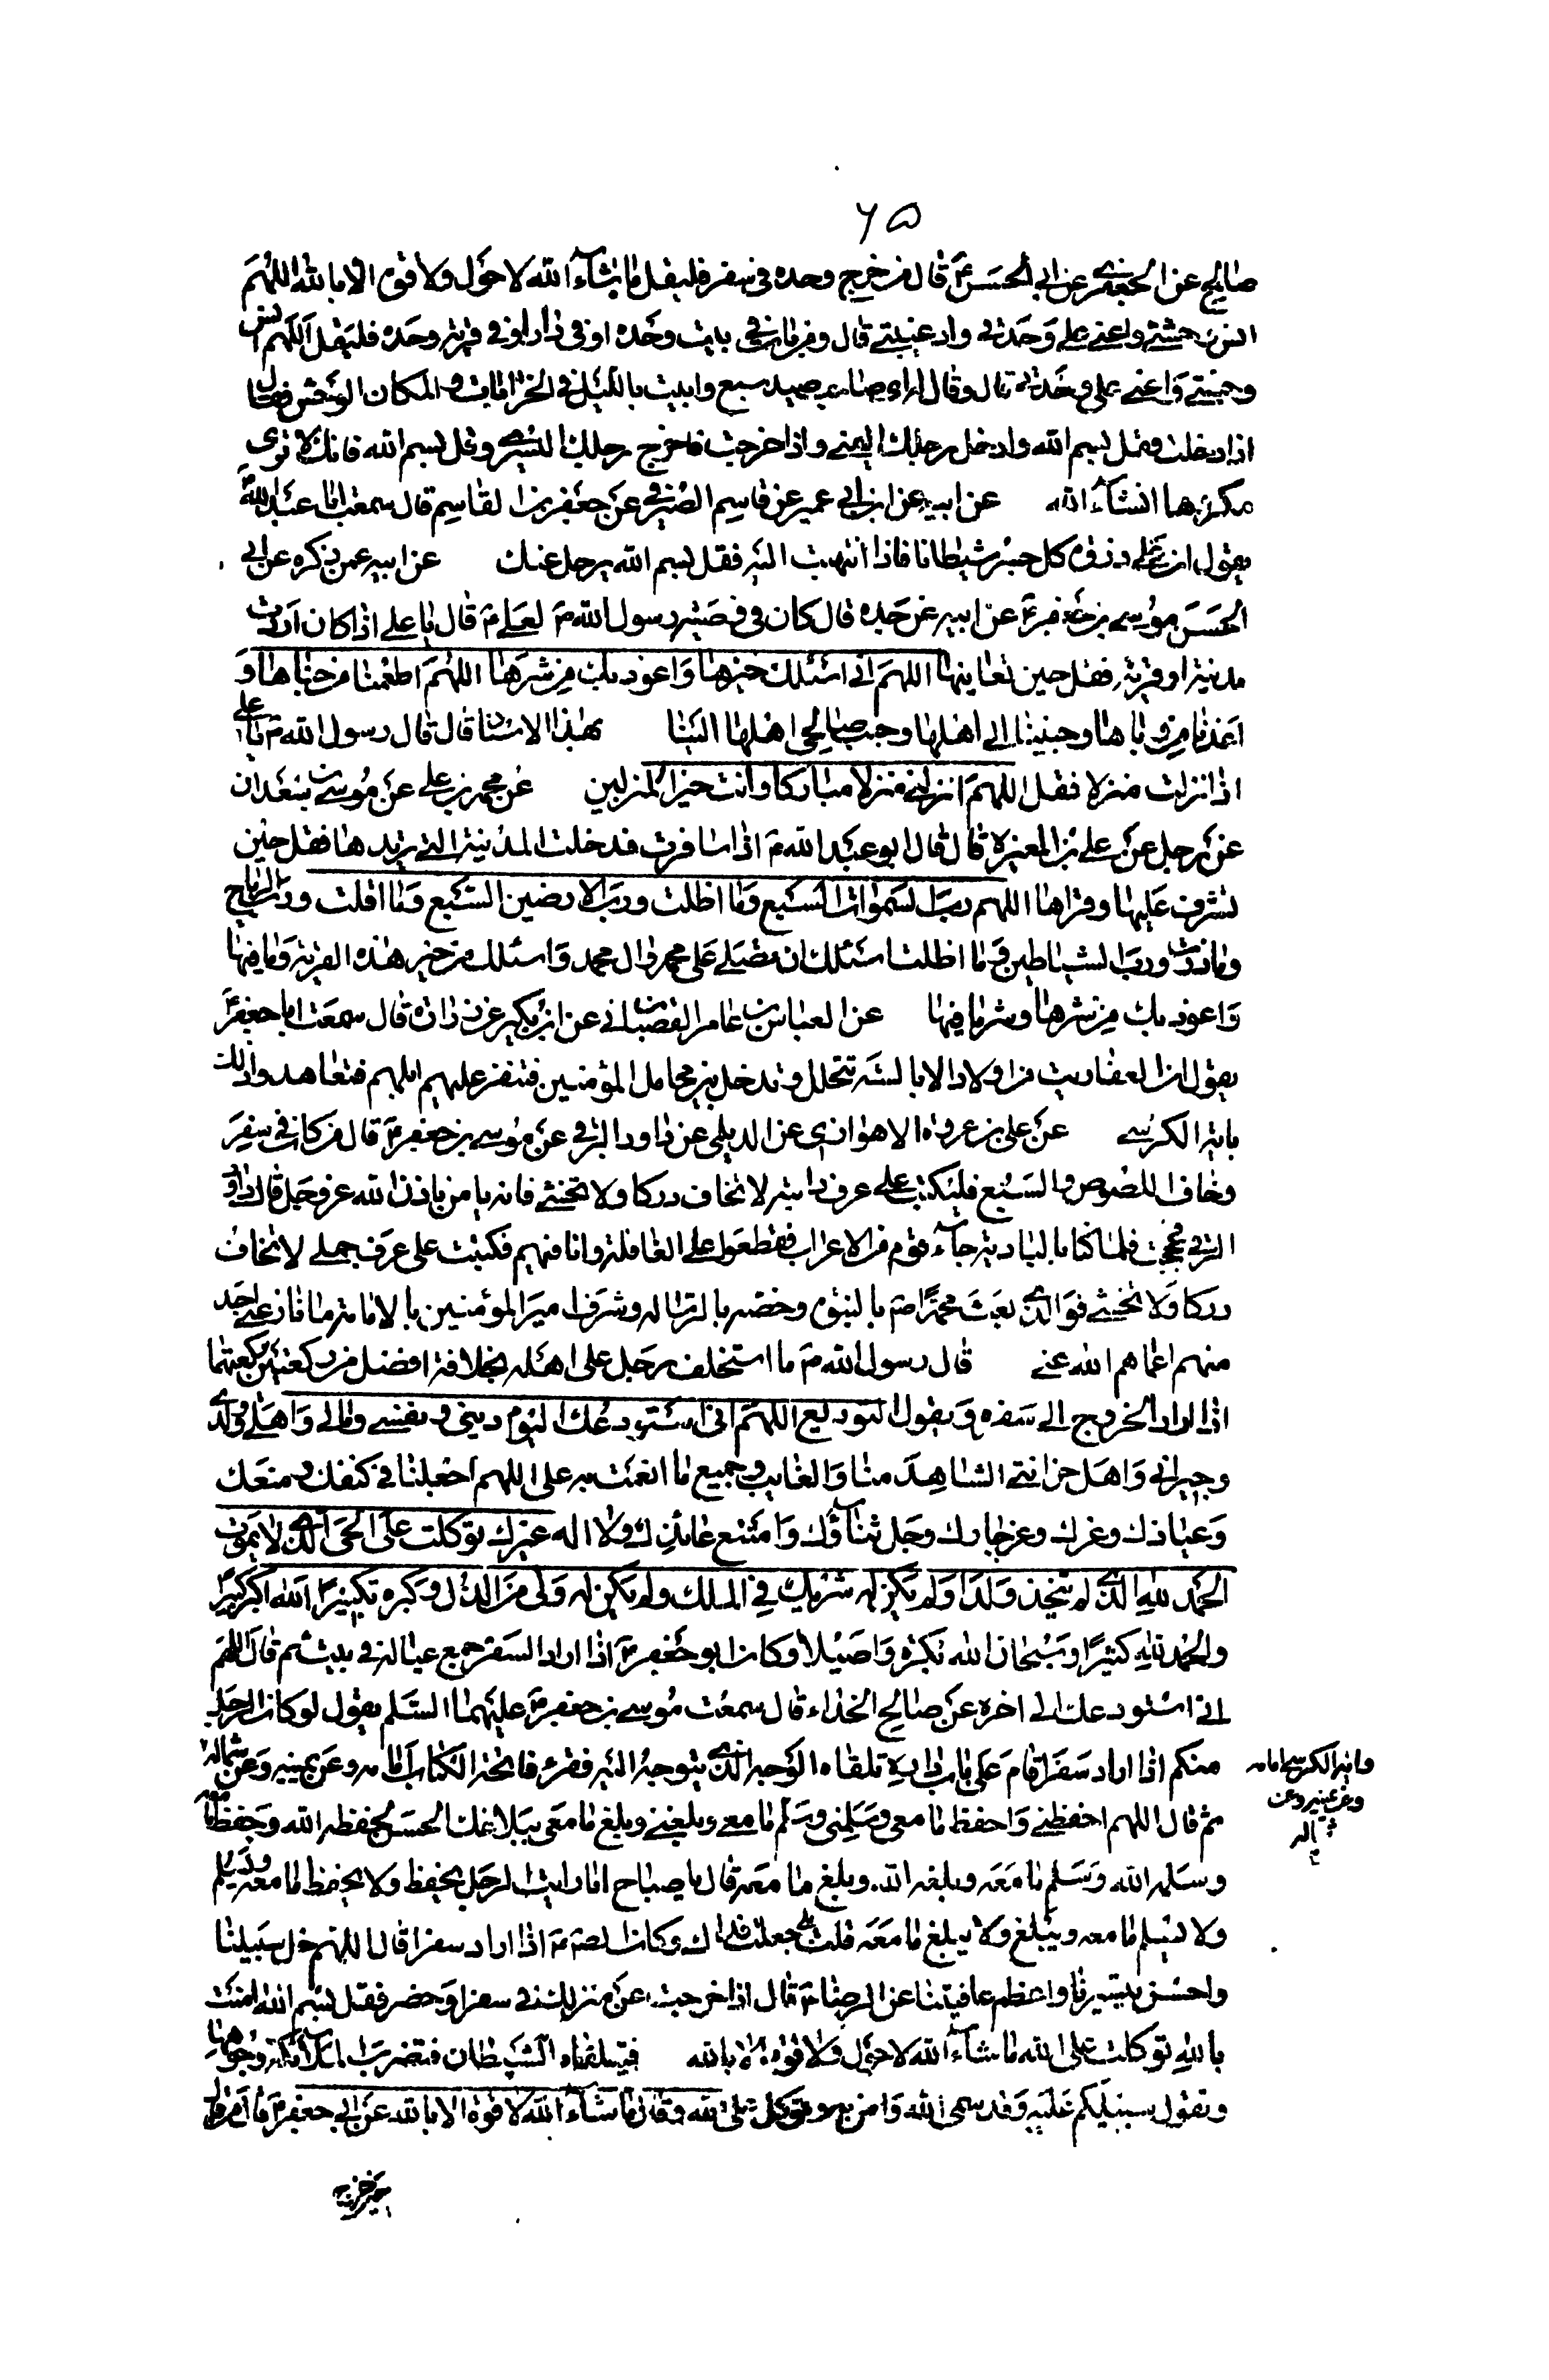 ۶۵
صالح عن الجعفری عن ابی الحسن ع قال من خرج وحده فی سفر فلیقل ما شآء الله لا حول ولا قوة الا بالله اللهم
انس وحشتی واعنی علی وحدتی واد غیبتی قال ومن بات فی بیت وحده او فی دار او فی قریة وحده فلیقل اللهم انس
وحشتی واعنی علی وحدتی قال وقال له صاحب صید سبع وابیت باللیل فی الخرابات والمکان الوحش فقال
اذا دخلت فقل بسم الله وادخل رجلک الیمنی واذا خرجت فاخرج رجلک الیسری وقل بسم الله فانک لا تری
مکروها انشآء الله عن ابیه عن ابن ابی عمیر عن قاسم الصیرفی عن جعفر بن القاسم قال سمعت ابا عبد الله ع
یقول ان علی ذروة کل جسر شیطانا فاذا انتهیت الیه فقل بسم الله یرحل عنک عن ابیه عمن ذکره عن ابی
الحسن موسی بن جعفر ع عن ابیه عن جده قال کان فی وصیة رسول الله ص لعلی ع قال یا علی اذا کان اردت
مدینة او قریة فقل حین تعاینها اللهم انی اسئلک خیرها واعوذ بک من شرها اللهم اطعمنا من جناها و
اعذنا من وباها وحببنا الی اهلها وحبب صالحی اهلها الینا بهذا الاسناد قال قال رسول الله ص یا علی
اذا نزلت منزلا فقل اللهم انزلنی منزلا مبارکا وانت خیر المنزلین عن محمد بن علی عن موسی بن سعدان
عن رجل عن علی بن المغیرة قال قال ابو عبد الله ع اذا سافرت فدخلت المدینة التی تریدها فقل حین
تشرف علیها وتراها اللهم رب السموات السبع وما اظلت ورب الارضین السبع وما اقلت ورب الریاح
وما ذرت ورب الشیاطین وما اظلت اسئلک ان تصلی علی محمد وال محمد واسئلک من خیر هذه القریة وما فیها
واعوذ بک من شرها وشر ما فیها عن العباس بن عامر القصبانی عن ابن بکیر عن زرارة قال سمعت ابا جعفر ع
یقول ان العفاریت من اولاد الابالسة تتخلل وتدخل بین محامل المؤمنین فتنفر علیهم ابلهم فتعاهدوا ذلک
بایة الکرسی عن علی بن عروة الاهوازی عن الدیلمی عن داود الرقی عن موسی بن جعفر ع قال من کان فی سفر
وخاف اللصوص والسبع فلیکتب علی عرف دابته لا تخاف درکا ولا تخشی فانه یامن باذن الله عز وجل قال داود
الرقی فحججت فلما کنا بالبادیة جآء قوم من الاعراب فقطعوا علی القافلة وانا فیهم فکتبت علی عرف جملی لا تخاف
درکا ولا تخشی فو الذی بعث محمدا ص بالنبوة وخصه بالرسالة وشرف امیر المؤمنین بالامامة ما نازعنی احد
منهم اعماهم الله عنی قال رسول الله ص ما استخلف رجل علی اهله بخلافة افضل من رکعتین یرکعهما
اذا اراد الخروج الی سفره ویقول التودیع اللهم انی استودعک الیوم دینی ونفسی ومالی واهلی وولدی
وجیرانی واهل حزانتی الشاهد منا والغایب وجمیع ما انعمت به علی اللهم اجعلنا فی کنفک ومنعک
وعیاذک وعزک وعز جارک وجل ثناؤک وامتنع عائذک ولا اله غیرک توکلت علی الحی الذی لا یموت
الحمد لله الذی لم یتخذ ولدا ولم یکن له شریک فی الملک ولم یکن له ولی من الذل وکبره تکبیرا الله اکبر کبیرا
والحمد لله کثیرا وسبحان الله بکرة واصیلا وکان ابو جعفر ع اذا اراد السفر جمع عیاله فی بیت ثم قال اللهم
انی استودعک الی اخره عن صالح الحذاء قال سمعت موسی بن جعفر ع علیهما السلم یقول لو کان الرجل
منکم اذا اراد سفرا قام علی باب داره تلقاء الوجه الذی یتوجه الیه فقرء فاتحة الکتاب امامه وعن یمینه وعن شماله
وایة الکرسی امامه
وعن یمینه وعن
شماله
ثم قال اللهم احفظنی واحفظ ما معی وسلمنی وسلم ما معی وبلغنی وبلغ ما معی ببلاغک الحسن لحفظه الله وحفظ ما معه
وسلمه الله وسلم ما معه وبلغه الله وبلغ ما معه قال یا صباح اما رایت الرجل یحفظ ولا یحفظ ما معه ویسلم
ولا یسلم ما معه ویبلغ ولا یبلغ ما معه قلت بلی جعلت فداک وکان الص ع اذا اراد سفرا قال اللهم خل سبیلنا
واحسن تسییرنا واعظم عافیتنا عن الرضا ع قال اذا خرجت عن منزلک فی سفر او حضر فقل بسم الله امنت
بالله توکلت علی الله ما شآء الله لا حول ولا قوة الا بالله فتلقاه الشیطان فتضرب الملائکة وجوهها
وتقول سبیلکم علیه وقد سمی الله وامن به وتوکل علی الله وقال ما شآء الله لا قوة الا بالله عن ابی جعفر ع